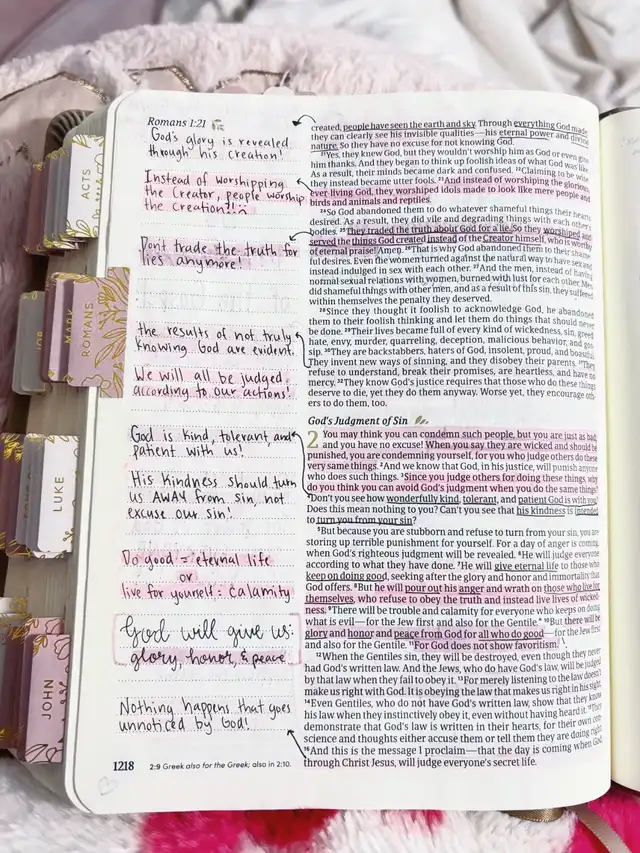 Romans 1:21
God's glory is revealed
through his creation!
Instead of worshipping
the Creator, people worship
the creation?!
Don't trade the truth for
lies anymore!
the results of not truly
knowing God are evident.
We will all be judged,
according to our actions!
God is kind, tolerant, and
patient with us!
His kindness should turn
us AWAY from sin, not
excuse our sin!
Do good = eternal life
or
live for yourself: calamity
God will give us:
glory, honor, & peace
Nothing happens that goes
unnoticed by God!
1218
2:9 Greek also for the Greek; also in 2:10.
created, people have seen the earth and sky. Through everything God made,
they can clearly see his invisible qualities—his eternal power and divine
nature. So they have no excuse for not knowing God.
21Yes, they knew God, but they wouldn't worship him as God or even give
him thanks. And they began to think up foolish ideas of what God was like.
As a result, their minds became dark and confused. 22Claiming to be wise,
they instead became utter fools. 23And instead of worshiping the glorious,
ever-living God, they worshiped idols made to look like mere people and
birds and animals and reptiles.
24So God abandoned them to do whatever shameful things their hearts
desired. As a result, they did vile and degrading things with each other's
bodies. 25They traded the truth about God for a lie. So they worshiped and
served the things God created instead of the Creator himself, who is worthy
of eternal praise! Amen. 26That is why God abandoned them to their shame-
ful desires. Even the women turned against the natural way to have sex and
instead indulged in sex with each other. 27And the men, instead of having
normal sexual relations with women, burned with lust for each other. Men
did shameful things with other men, and as a result of this sin, they suffered
within themselves the penalty they deserved.
28Since they thought it foolish to acknowledge God, he abandoned
them to their foolish thinking and let them do things that should never
be done. 29Their lives became full of every kind of wickedness, sin, greed,
hate, envy, murder, quarreling, deception, malicious behavior, and gos-
sip. 30They are backstabbers, haters of God, insolent, proud, and boastful.
They invent new ways of sinning, and they disobey their parents. 31They
refuse to understand, break their promises, are heartless, and have no
mercy. 32They know God's justice requires that those who do these things
deserve to die, yet they do them anyway. Worse yet, they encourage oth-
ers to do them, too.
God's Judgment of Sin
2 You may think you can condemn such people, but you are just as bad,
and you have no excuse! When you say they are wicked and should be
punished, you are condemning yourself, for you who judge others do these
very same things. 2And we know that God, in his justice, will punish anyone
who does such things. 3Since you judge others for doing these things, why
do you think you can avoid God's judgment when you do the same things?
4Don't you see how wonderfully kind, tolerant, and patient God is with you?
Does this mean nothing to you? Can't you see that his kindness is intended
to turn you from your sin?
5But because you are stubborn and refuse to turn from your sin, you are
storing up terrible punishment for yourself. For a day of anger is coming,
when God's righteous judgment will be revealed. 6He will judge everyone
according to what they have done. 7He will give eternal life to those who
keep on doing good, seeking after the glory and honor and immortality that
God offers. 8But he will pour out his anger and wrath on those who live for
themselves, who refuse to obey the truth and instead live lives of wicked-
ness. 9There will be trouble and calamity for everyone who keeps on doing
what is evil—for the Jew first and also for the Gentile.* 10But there will be
glory and honor and peace from God for all who do good—for the Jew first
and also for the Gentile. 11For God does not show favoritism.
12When the Gentiles sin, they will be destroyed, even though they never
had God's written law. And the Jews, who do have God's law, will be judged
by that law when they fail to obey it. 13For merely listening to the law doesn't
make us right with God. It is obeying the law that makes us right in his sight.
14Even Gentiles, who do not have God's written law, show that they know
his law when they instinctively obey it, even without having heard it. 15They
demonstrate that God's law is written in their hearts, for their own con-
science and thoughts either accuse them or tell them they are doing right.
16And this is the message I proclaim—that the day is coming when God,
through Christ Jesus, will judge everyone's secret life.
ACTS
JOB
MARK
ROMANS
LUKE
JOHN